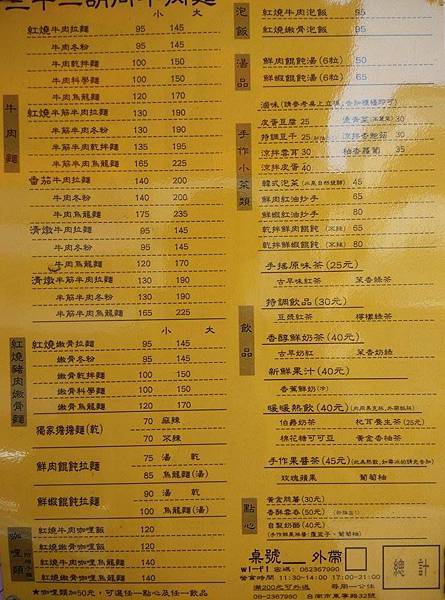 小 大
牛肉麵
紅燒牛肉拉麵 95 145
牛肉冬粉 95 145
牛肉乾拌麵 100 150
牛肉科學麵 100 150
牛肉烏龍麵 120 170
紅燒半筋半肉拉麵 130 190
半筋半肉冬粉 130 190
半筋半肉乾拌麵 135 195
半筋半肉烏龍麵 165 225
番茄牛肉拉麵 140 200
牛肉冬粉 140 200
牛肉烏龍麵 175 235
清燉牛肉拉麵 95 145
牛肉冬粉 95 145
牛肉烏龍麵 120
清燉半筋半肉拉麵 130 190
半筋半肉冬粉 130 190
半筋半肉烏龍麵 165
小 大
紅燒豬肉嫩骨麵
紅燒嫩骨拉麵 95 145
嫩骨冬粉 95 145
嫩骨乾拌麵 100 150
嫩骨科學麵 100 150
嫩骨烏龍麵 120 170
獨家擔擔麵(乾) 70 麻辣
70 不辣
鮮肉餛飩拉麵 75 湯 乾
85 烏龍麵(湯)
鮮蝦餛飩拉麵 90 湯 乾
100 烏龍麵(湯)
咖哩類
紅燒牛肉咖哩飯 120
紅燒嫩骨咖哩飯 120
牛肉咖哩烏龍麵 140
嫩骨咖哩烏龍麵 140
★咖哩類加50元,可選任一點心及任一飲品
泡飯
紅燒牛肉泡飯 95
紅燒嫩骨泡飯 95
湯品
鮮肉餛飩湯(6粒) 50
鮮蝦餛飩湯(6粒) 65
手作小菜類
滷味
皮蛋豆腐 25
特調豆干 25
涼拌雲耳 30
柚香蘿蔔 35
涼拌皮蛋 40
韓式泡菜 45
鮮肉紅油抄手 65
鮮蝦紅油抄手 80
乾拌鮮肉餛飩 65
乾拌鮮蝦餛飩 80
飲品
手搖原味茶(25元)
古早味紅茶 茉香綠茶
特調飲品(30元)
豆漿紅茶 檸檬綠茶
香醇鮮奶茶(40元)
古早奶紅 茉香奶綠
新鮮果汁(40元)
香蕉鮮奶(冷)
暖暖熱飲(40元)
伯爵奶茶 枸杞養生茶(25元)
棉花糖可可豆 黃金香柚茶
手作果醬茶(45元)
玫瑰蘋果 葡萄柚
點心
黃金脆薯(30元)
香酥雲卷(50元)
自製奶酪(40元)
桌號 外帶
wi-fi 密碼:062367990
營業時間 11:30-14:00 17:00-21:00
滿200元可外送 每周一公休
06-2367990 台南市東寧路32號
總計